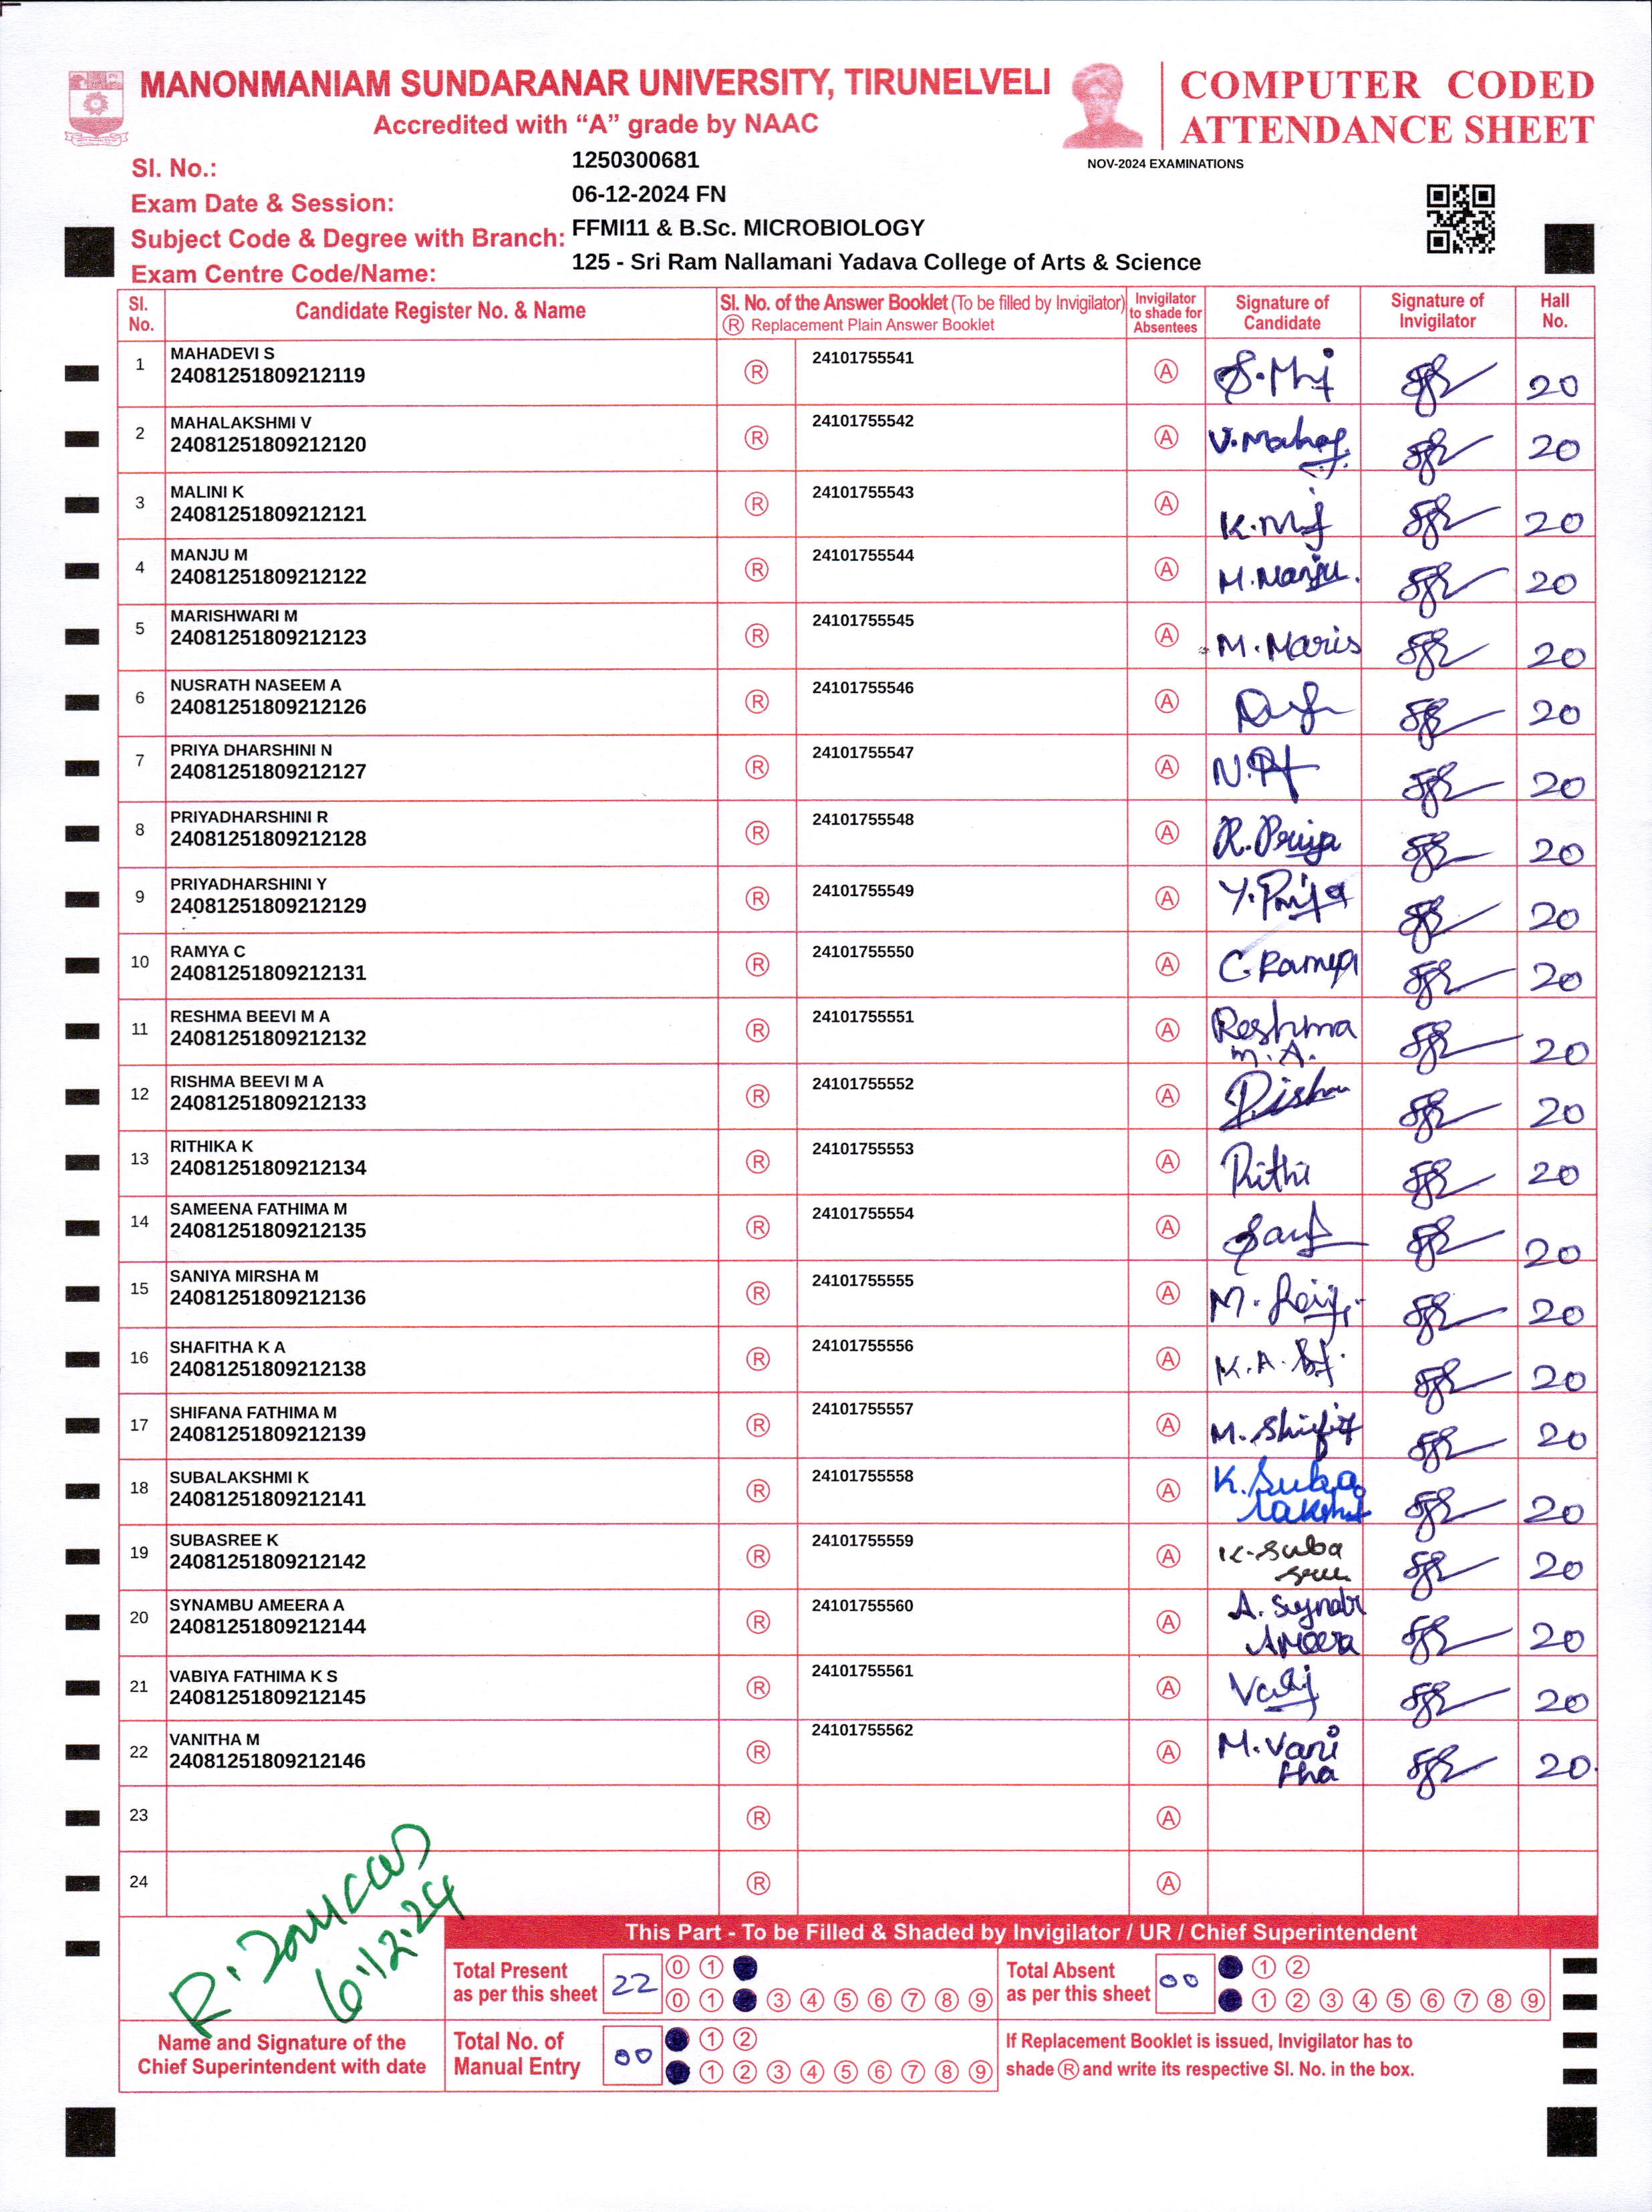 MANONMANIAM SUNDARANAR UNIVERSITY, TIRUNELVELI
Accredited with “A” grade by NAAC
COMPUTER CODED
ATTENDANCE SHEET
NOV-2024 EXAMINATIONS
Sl. No.: 1250300681
Exam Date & Session: 06-12-2024 FN
Subject Code & Degree with Branch: FFMI11 & B.Sc. MICROBIOLOGY
Exam Centre Code/Name: 125 - Sri Ram Nallamani Yadava College of Arts & Science
Sl. No. Candidate Register No. & Name Sl. No. of the Answer Booklet (To be filled by Invigilator) Ⓡ Replacement Plain Answer Booklet Invigilator to shade for Absentees Signature of Candidate Signature of Invigilator Hall No.
1 MAHADEVI S
24081251809212119 Ⓡ 24101755541 Ⓐ 20
2 MAHALAKSHMI V
24081251809212120 Ⓡ 24101755542 Ⓐ 20
3 MALINI K
24081251809212121 Ⓡ 24101755543 Ⓐ 20
4 MANJU M
24081251809212122 Ⓡ 24101755544 Ⓐ M.Manju. 20
5 MARISHWARI M
24081251809212123 Ⓡ 24101755545 Ⓐ M.Maris 20
6 NUSRATH NASEEM A
24081251809212126 Ⓡ 24101755546 Ⓐ 20
7 PRIYA DHARSHINI N
24081251809212127 Ⓡ 24101755547 Ⓐ 20
8 PRIYADHARSHINI R
24081251809212128 Ⓡ 24101755548 Ⓐ R.Priya 20
9 PRIYADHARSHINI Y
24081251809212129 Ⓡ 24101755549 Ⓐ Y.Priya 20
10 RAMYA C
24081251809212131 Ⓡ 24101755550 Ⓐ C.Ramya 20
11 RESHMA BEEVI M A
24081251809212132 Ⓡ 24101755551 Ⓐ Reshma M.A. 20
12 RISHMA BEEVI M A
24081251809212133 Ⓡ 24101755552 Ⓐ 20
13 RITHIKA K
24081251809212134 Ⓡ 24101755553 Ⓐ Rithi 20
14 SAMEENA FATHIMA M
24081251809212135 Ⓡ 24101755554 Ⓐ 20
15 SANIYA MIRSHA M
24081251809212136 Ⓡ 24101755555 Ⓐ 20
16 SHAFITHA K A
24081251809212138 Ⓡ 24101755556 Ⓐ 20
17 SHIFANA FATHIMA M
24081251809212139 Ⓡ 24101755557 Ⓐ 20
18 SUBALAKSHMI K
24081251809212141 Ⓡ 24101755558 Ⓐ K.Suba 20
19 SUBASREE K
24081251809212142 Ⓡ 24101755559 Ⓐ K.Suba 20
20 SYNAMBU AMEERA A
24081251809212144 Ⓡ 24101755560 Ⓐ 20
21 VABIYA FATHIMA K S
24081251809212145 Ⓡ 24101755561 Ⓐ 20
22 VANITHA M
24081251809212146 Ⓡ 24101755562 Ⓐ M.Vani tha 20.
23 Ⓡ Ⓐ
24 Ⓡ Ⓐ
6.12.24
Name and Signature of the
Chief Superintendent with date
This Part - To be Filled & Shaded by Invigilator / UR / Chief Superintendent
Total Present as per this sheet 22
0 1
0 1 3 4 5 6 7 8 9
Total Absent as per this sheet 00
1 2
1 2 3 4 5 6 7 8 9
Total No. of Manual Entry 00
1 2
1 2 3 4 5 6 7 8 9
If Replacement Booklet is issued, Invigilator has to
shade Ⓡ and write its respective Sl. No. in the box.